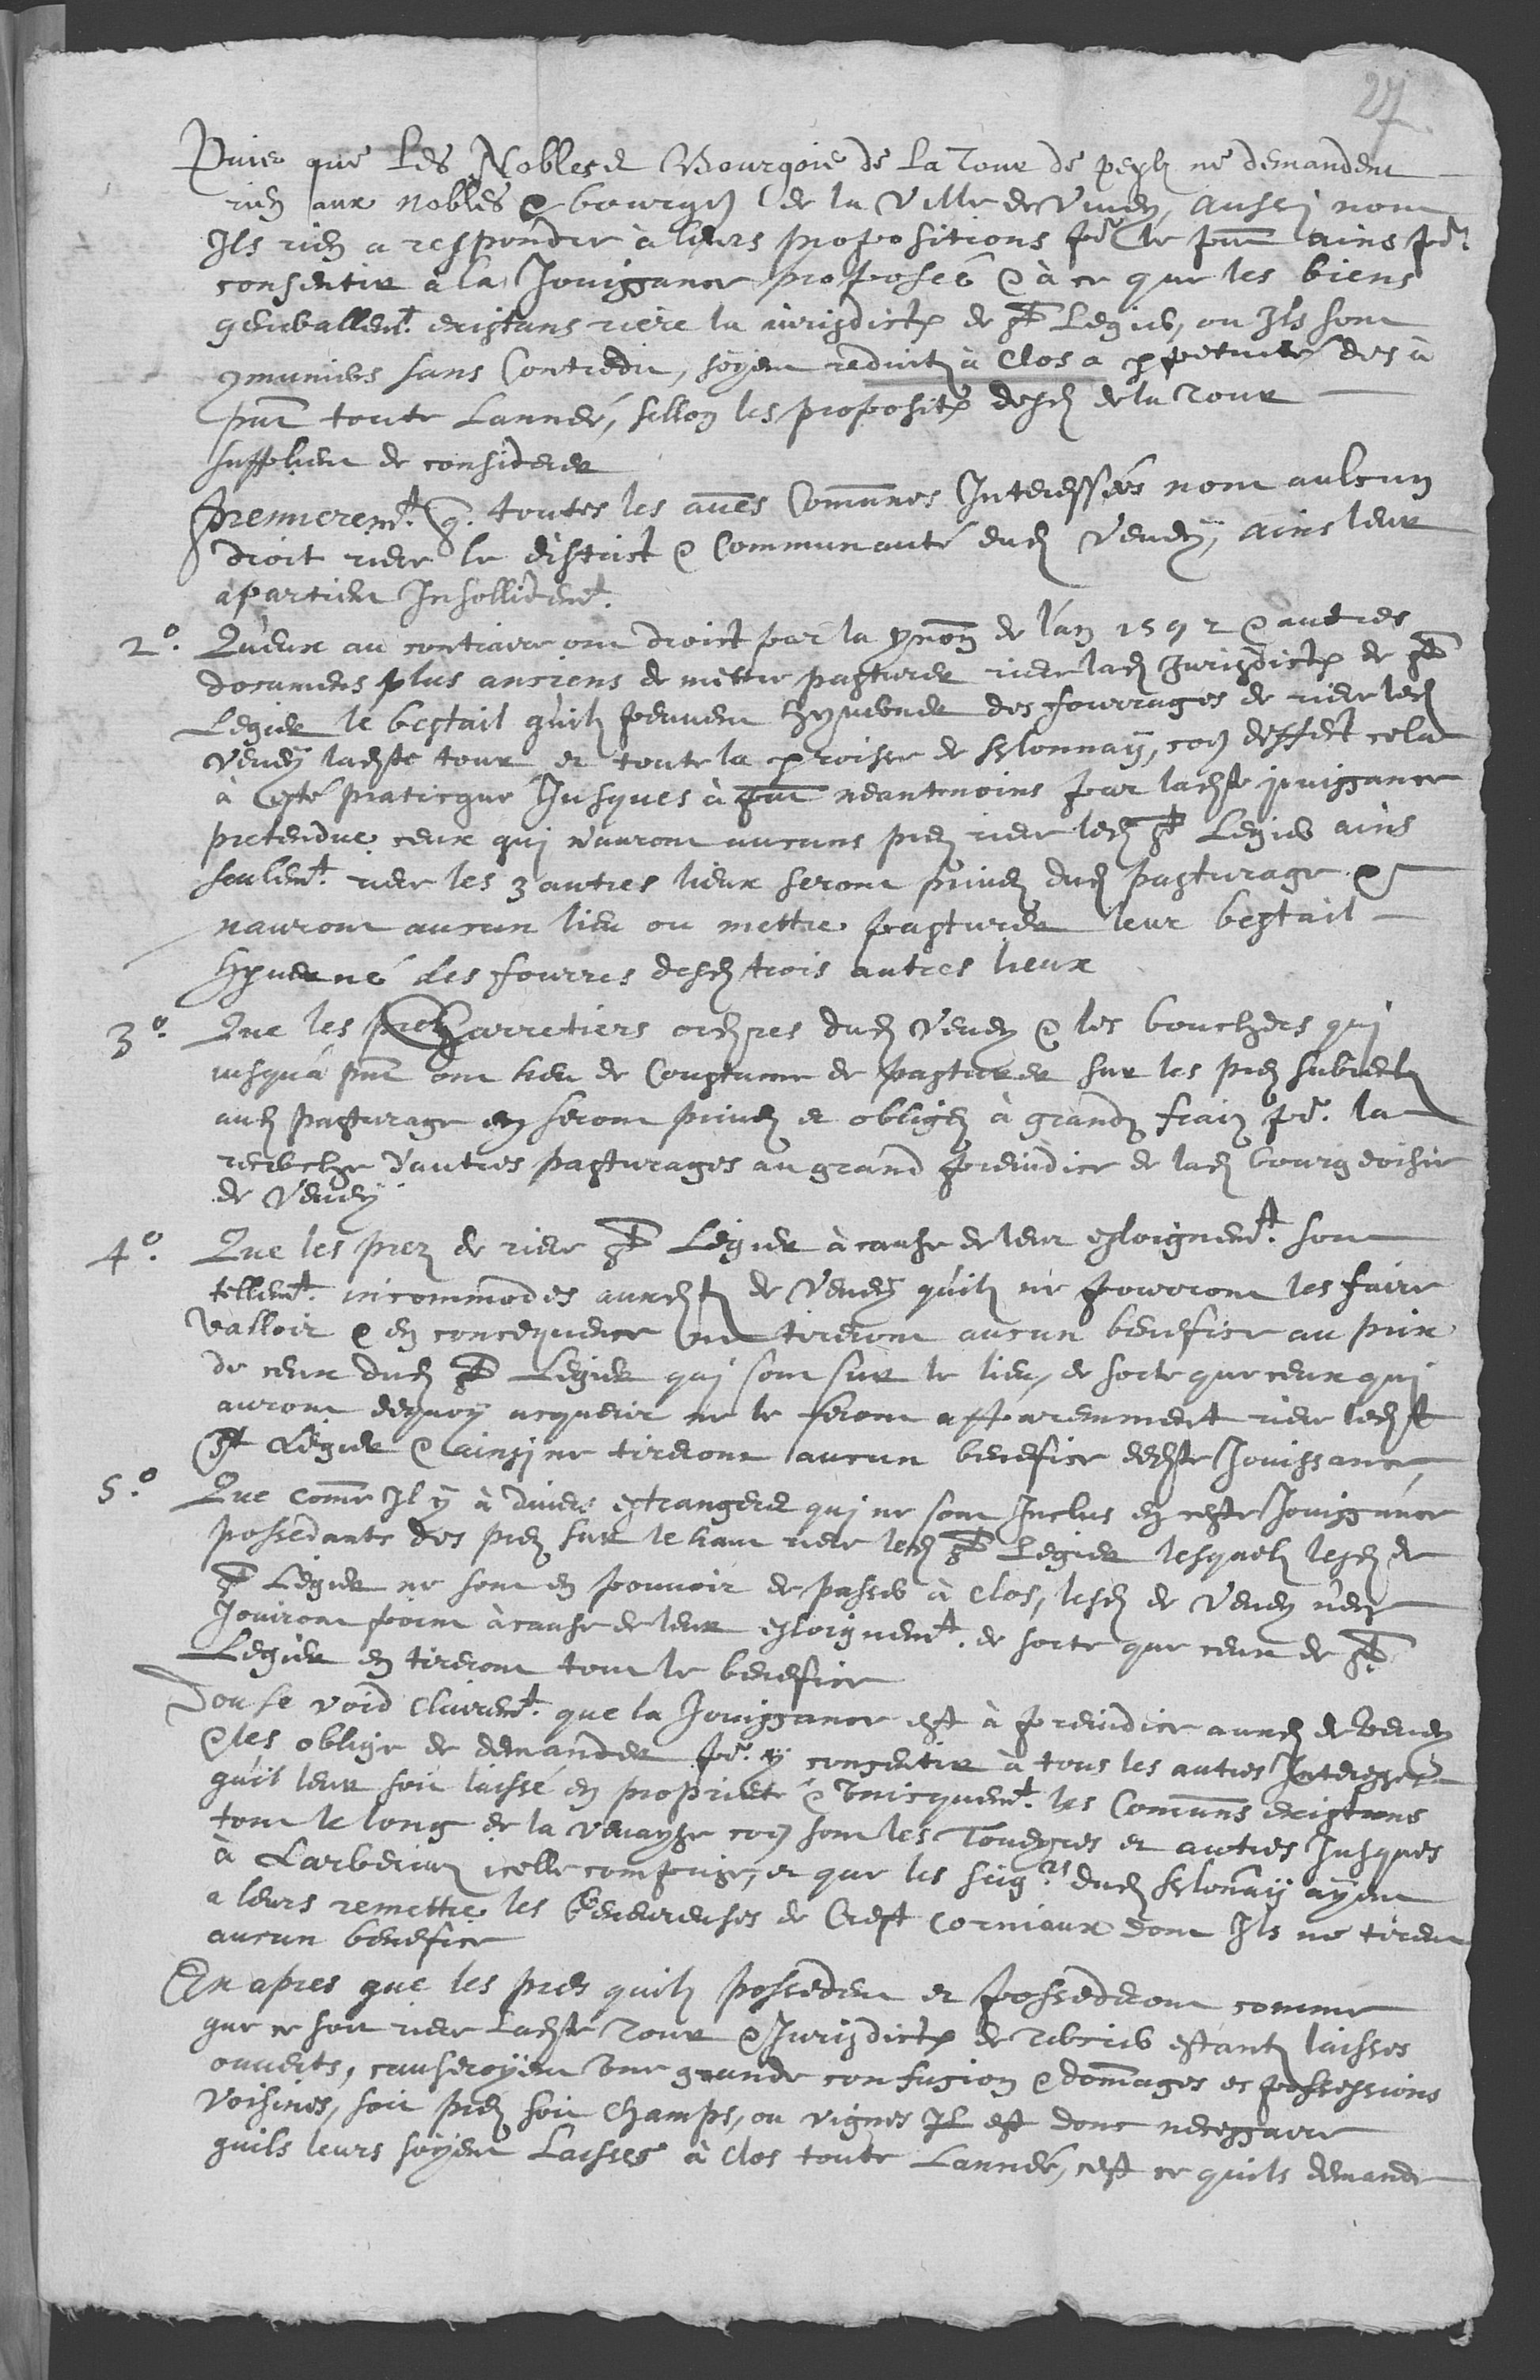 27
Puis que Les Nobles & Bourgois de La Tour de peylz ne demandent
rien aux nobles & bourgois de la Ville de Vevey, aussi nont
Ils rien a respondre à leurs propositions pr le pnt ains pr
consentir à la Jouissance proposée & à ce que les biens
generallemt existans riere la jurisdict de St Legier, ou Ils sont
comuniers sans Contredit, soyent reduitz à Clos a perpetuité des à
pnt toute Lannée, sellon les proposit desd de la Tour
supplient de considerer
Premieremt q. toutes les aues Comunes Interessées nont aulcun
droit riere le district & Communauté dud Vevey, ains leur
apartient Insollidemt.
2o. Qu'eux au contraire ont droict par la pnon de l'an 1592 & autres
documens plus anciens de mettre pasturer riere lad Jurisdict de St
Legier le bestail quilz peuvent hyverner des fourrages de riere led
Vevey ladste tour et toute la proisse de Blonnay, coe deffect cela
à esté praticqué Jusques à pnt neantmoins par ladste jouissance
pretendue ceux qui n'auront aucuns prez riere led St Legier ains
seulemt. riere les 3 autres lieux seront privez dud pasturage &
nauront aucun lieu ou mettre pasturer leur bestail
hyverné des fourres desd trois autres lieux
3o. Que les Charretiers ordres dud Vevey & les bouchers qui
jusquà pnt ont heu de Coustume de pasturer sur les prez subietz
aud pasturage en seront privez et obligez à grandz fraiz pr. la
recerche d'autres pasturages au grand preiudice de lad bourgeoisie
de Vevey
4o. Que les prez de riere St Legier à cause de leur esloignemt. sont
tellemt. incommodes auxdts de Vevey qu'ilz ne pourront les faire
valloir & en concequence ne tireront aucun benefice au prix
de ceux dud St Legier qui sont sur le lieu, de sorte que ceux qui
auront dequoy acquerir ne le feront apparemment riere ledst
St Legier & ainsi ne tireront aucun benefice dedste Jouissance,
5o. Que come Il y à divers estrangers qui ne sont Inclus en ceste Jouissance
possedants des prez sur le haut riere led St Legier lesquelz lesd de
St Legier ne sont en pouvoir de passer à Clos, lesd de Vevey n'en
Jouiront point à cause de leur esloignemt. de sorte que ceux de St.
Legier en tireront tout le benefice
Dou se void Clairemt. que la Jouissance est à preiudice auxd de Vevey
& les oblige de demander pr. y consentir à tous les autres Interessez
quil leur soit laissé en proprieté & Unicquemt. les Comuns existans
tout le long de la Vevayse coe sont les Toveyres et autres Jusques
à Larberiaz icelle comprise, et que les seigrs dud Blonay ayent
a leurs remettre les Genevreuses de Crest Corniaux dont Ils ne tirent
aucun benefice
En apres que les prez quilz possedent et possederont comme
que ce soit riere Ladste Tour & Jurisdict de Corsier estantz laisses
ouverts, causeroyent Une grande confusion & domages es possessions
Voisines, soit prez soit champs, ou vignes Il est donc necessaire
quils leurs soyent Laisses à Clos toute Lannée, cest ce quils demande